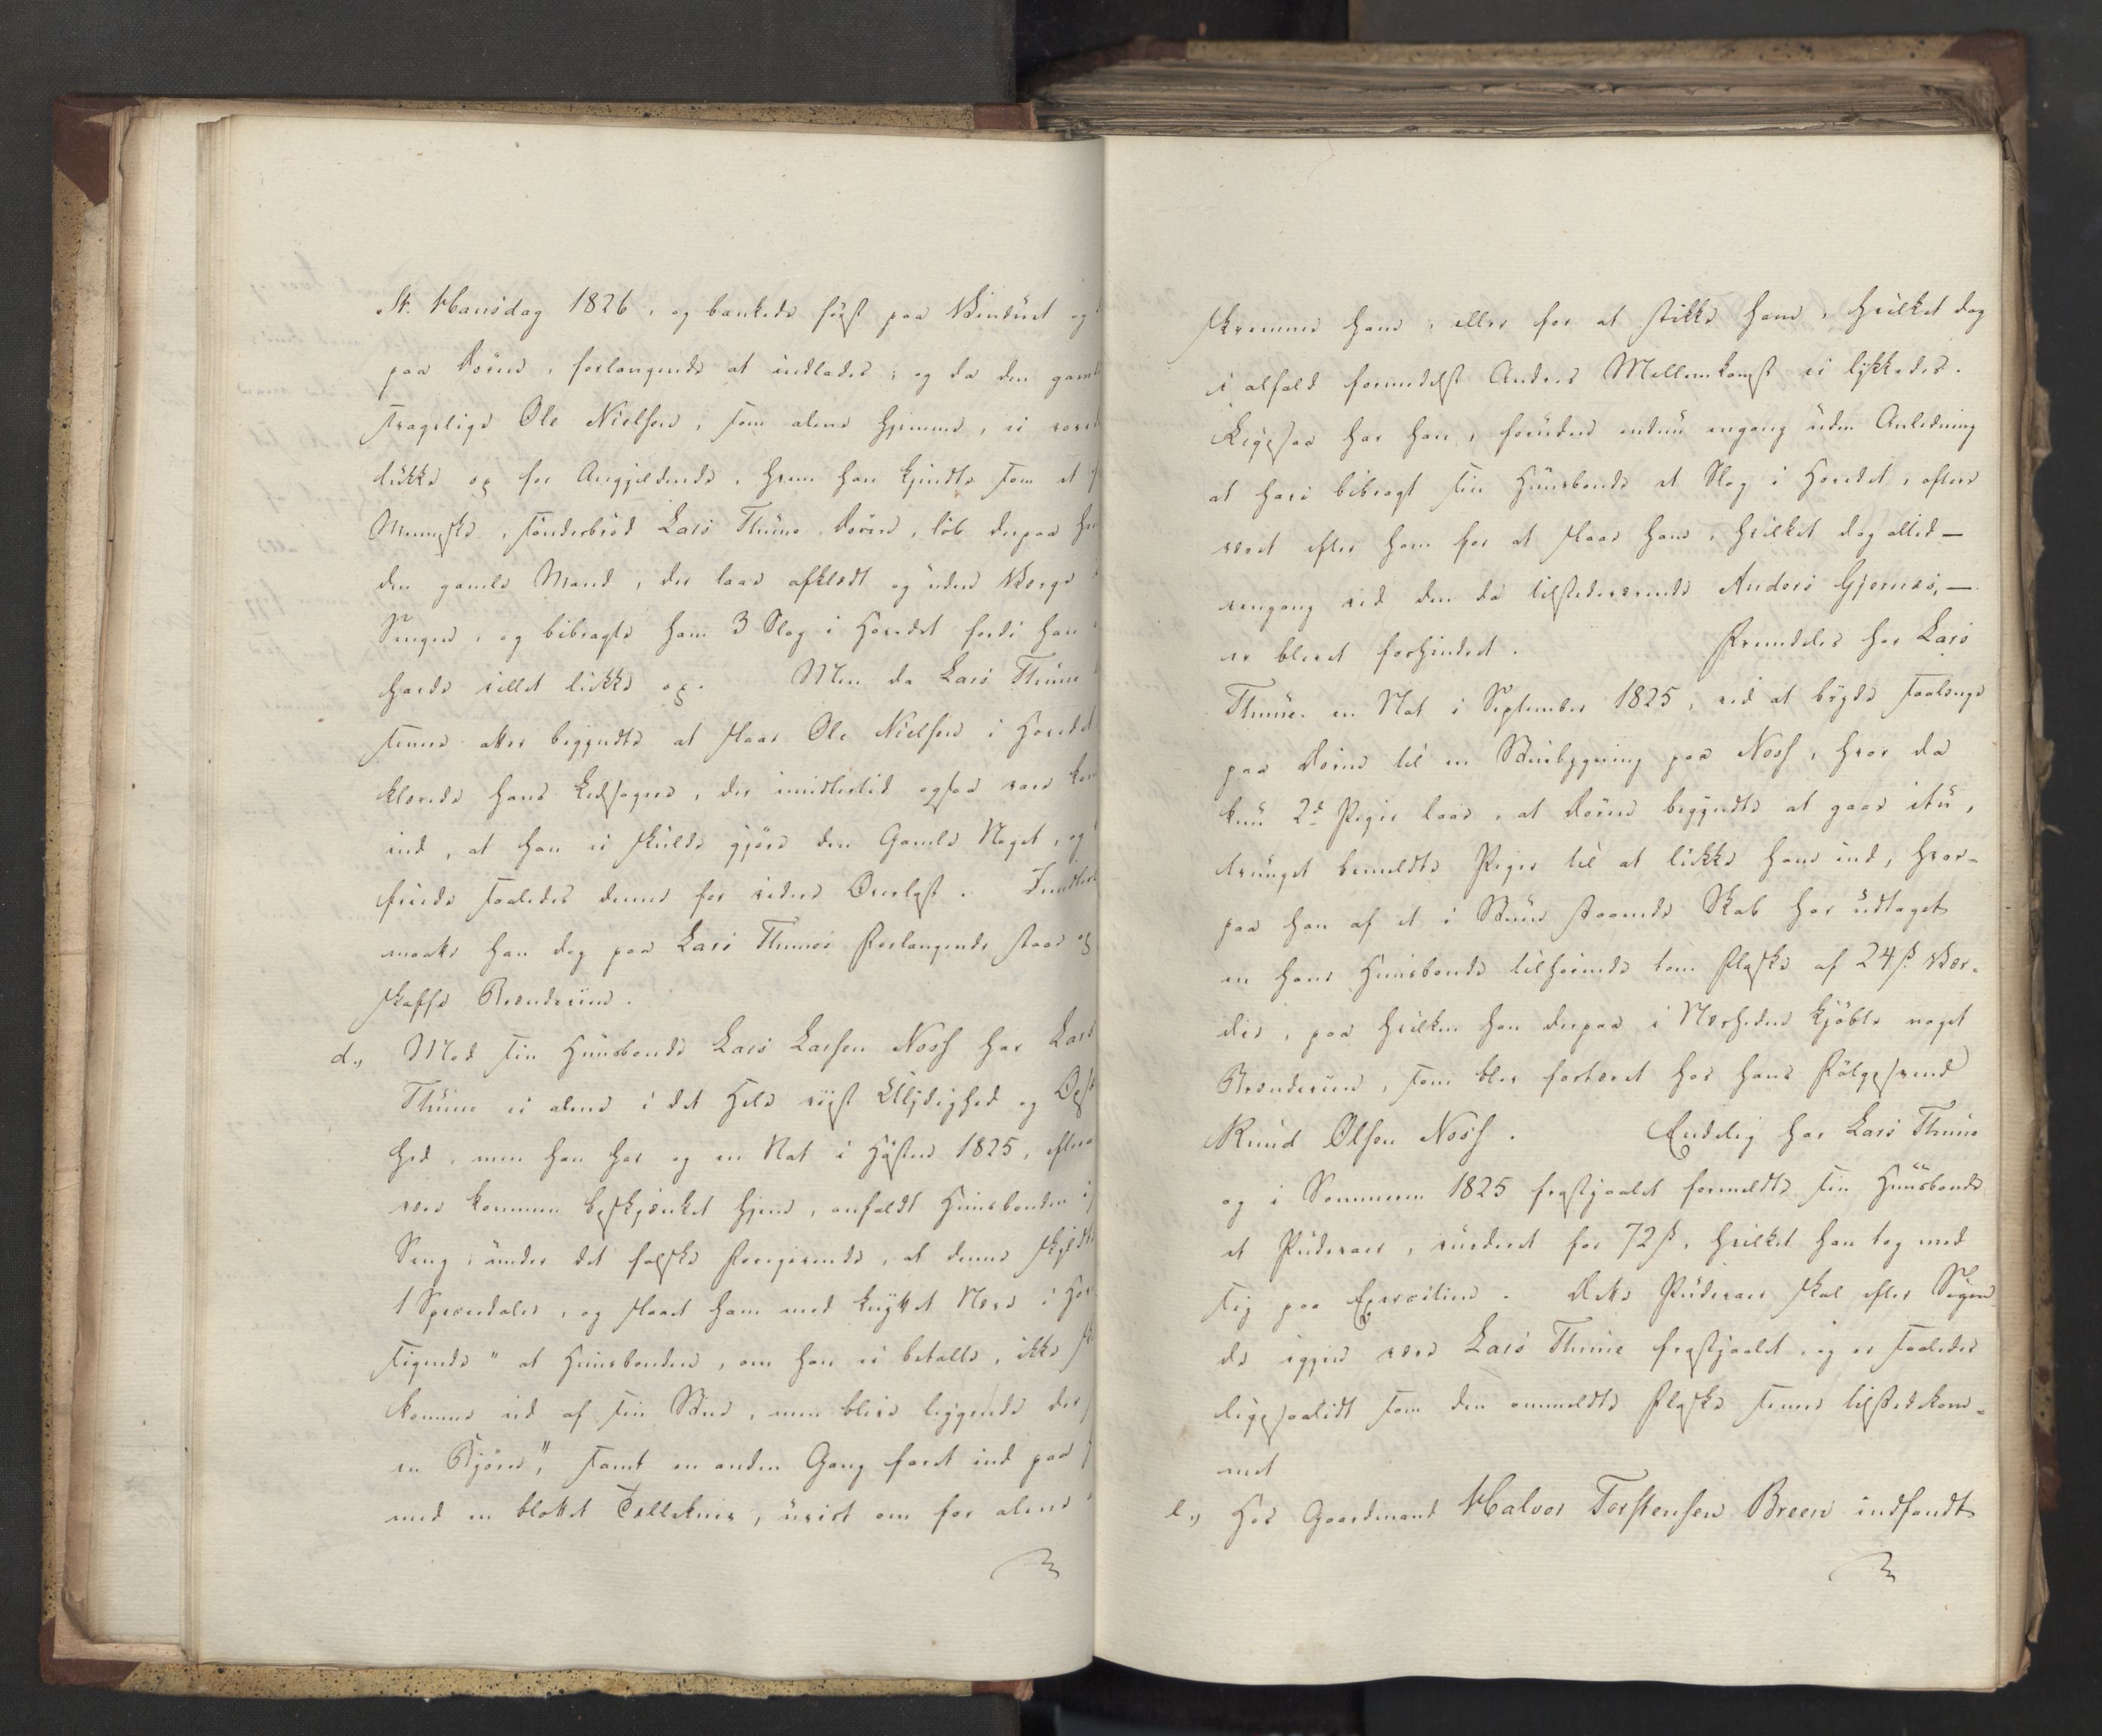 St. Hansdag 1826, og bankede først paa Vinduet og
paa Døren, forlangende at indlades; og da den gamle
svagelige Ole Nielsen, som alene hjemme, ei vovede
lukke op for Angjeldende, hvem han kjendte som et
Menneske, sønderbrød Lars Thune Døren, løb derpaa
den gamle Mand, der laae afklædt og uden Værge i
Sengen, og bibragte ham 3 Slag i Hovedet fordi han
havde villet lukke op. Men da Lars Thune
siden atter begyndte at slaae Ole Nielsen i Hovedet
klarede hans Ledsagere, der imidlertid ogsaa vare
ind, at han ei skulde gjøre den Gamle Noget, og
friede saaledes denne for videre Overlast. Imidlertid
maatte han dog paa Lars Thunes Forlangende staae op
skaffe Brændeviin.
d., Mod sin Huusbonde Lars Larsen Noss har Lars
Thune ei alene i det Hele viist Ulydighed og
hed, men han har og en Nat i Høsten 1825, efter at
være kommen beskjænket hjem, anfaldt Huusbonden i
Seng, under det falske Foregivende, at denne skyldte
1 Speciedaler, og slaaet ham med knyttet Næve i
sigende "at Huusbonden, om han ei betalte, ikke
komme ud af sin Stue, men blive liggende der
en Bjørn", samt en anden Gang faret ind paa
med en blottet Tollekniv, uvist om for alene
skræmme ham, eller for at stikke ham, hvilket dog
i alfald formedelst Andres Mellemkomst ei lykkedes.
Ligesaa har han, foruden endnu engang uden Anledning
at have bibragt sin Huusbonde et Slag i Hovedet, efter
været efter ham for at slaae ham, hvilket dog alled-
eengang ved den da tilstedeværende Anders Gjernæs,-
er blevet forhindret. Fremdeles har Lars
Thune en Nat i September 1825, ved at bryde saalænge
paa Døren til en Stuebygning paa Noss, hvor da
kun 2de Piger laae, at Døren begyndte at gaae itu,
tvunget bemeldte Piger til at lukke ham ind, hvor-
paa han af et i Stuen staaende Skab har udtaget
en hans Huusbonde tilhørende tom Flaske af 24 ß. Vær-
die, paa hvilken han derpaa i Nærheden kjøbte noget
Brændeviin, som blev fortæret hos hans Følgesvend
Knud Olsen Noss. Endelig har Lars Thune
og i Sommeren 1825 frastjaalet formeldte sin Huusbonde
et Pudevaar, vurderet for 72 ß, hvilket han tog med
sig paa Exercitien. Dette Pudevaar skal efter Sigen-
de igjen være Lars Thune frastjaalet, og er saaledes
ligesaalidt som den ommeldte Flaske senere tilstedekom-
met
e., Hos Gaardmand Halvor Torstensen Breen indfandt